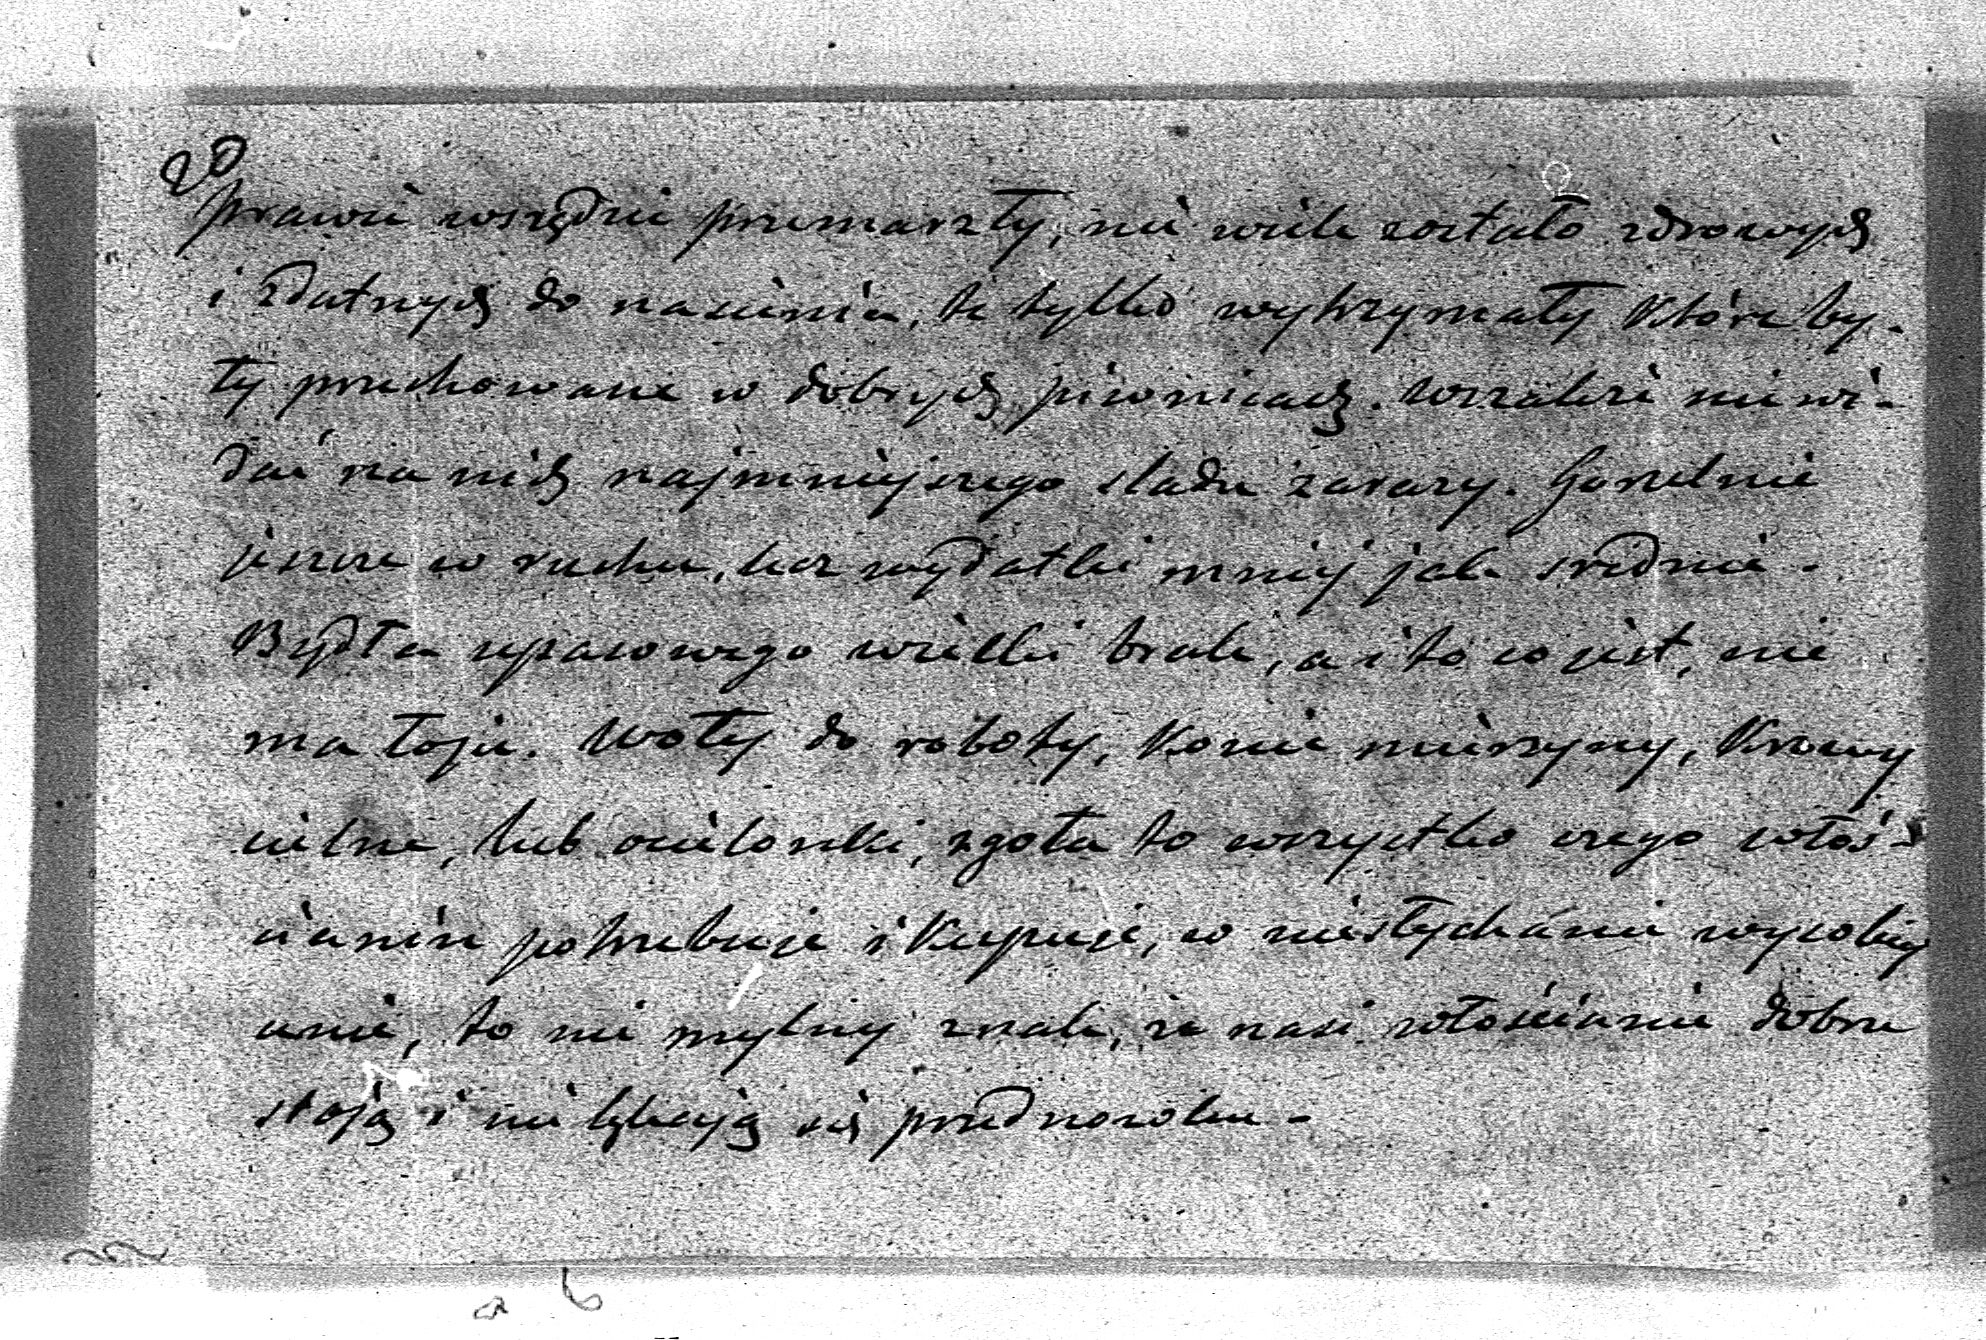 20
prawie wszędzie przemarzły, nie wiele zostało zdrowych
i zdatnych do nasienia, te tylko wytrzymały które by-
ły przechowane w dobrych piwnicach. Wszakże nie wi-
dać na nich najmniejszego śladu zarazy. Gorzelnie
jeszcze w ruchu, lecz wydatki mniej jak średnie.
Bydła upasowego wielki brak, a i to co jest, nie
ma łoju. Woły do roboty, konie mierzyny, krowy
cielne, lub ocielonki, zgoła to wszystko czego włoś-
cianin potrzebuje i kupuje, w niesłychanie wysokiej
cenie, to nie mylny znak, że nasi włościanie dobrze
stoją i nie lękają się przednowku.